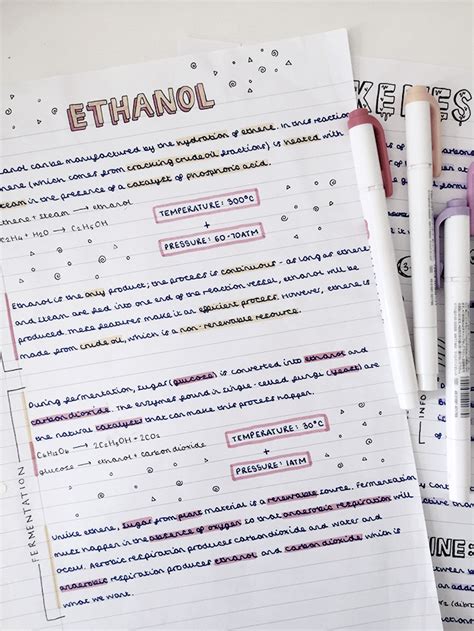 ETHANOL
anol can be manufactured by the hydration of ethene. In this reaction
hene (which comes from cracking crude oil fractions) is heated with
team in the presence of a catalyst of phosphoric acid.
ethene + steam → ethanol
C2H4 + H2O → C2H5OH
TEMPERATURE: 300°C
+
PRESSURE: 60-70ATM
Ethanol is the only product; the process is continuous - as long as ethene
and steam are fed into one end of the reaction vessel, ethanol will be
produced. These features make it an efficient process. However, ethene is
made from crude oil, which is a non-renewable resource.
During fermentation, sugar (glucose) is converted into ethanol and
carbon dioxide. The enzymes found in single-celled fungi (yeast) are
the natural catalyst that can make this process happen.
C6H12O6 → 2C2H5OH + 2CO2
glucose → ethanol + carbon dioxide
TEMPERATURE: 30°C
+
PRESSURE: 1ATM
FERMENTATION
Unlike ethene, sugar from plant material is a renewable source. Fermentation
must happen in the absence of oxygen so that anaerobic respiration will
occur. Aerobic respiration produces carbon dioxide and water and
anaerobic respiration produces ethanol and carbon dioxide which is
what we want.
KENES
INFO
INE: